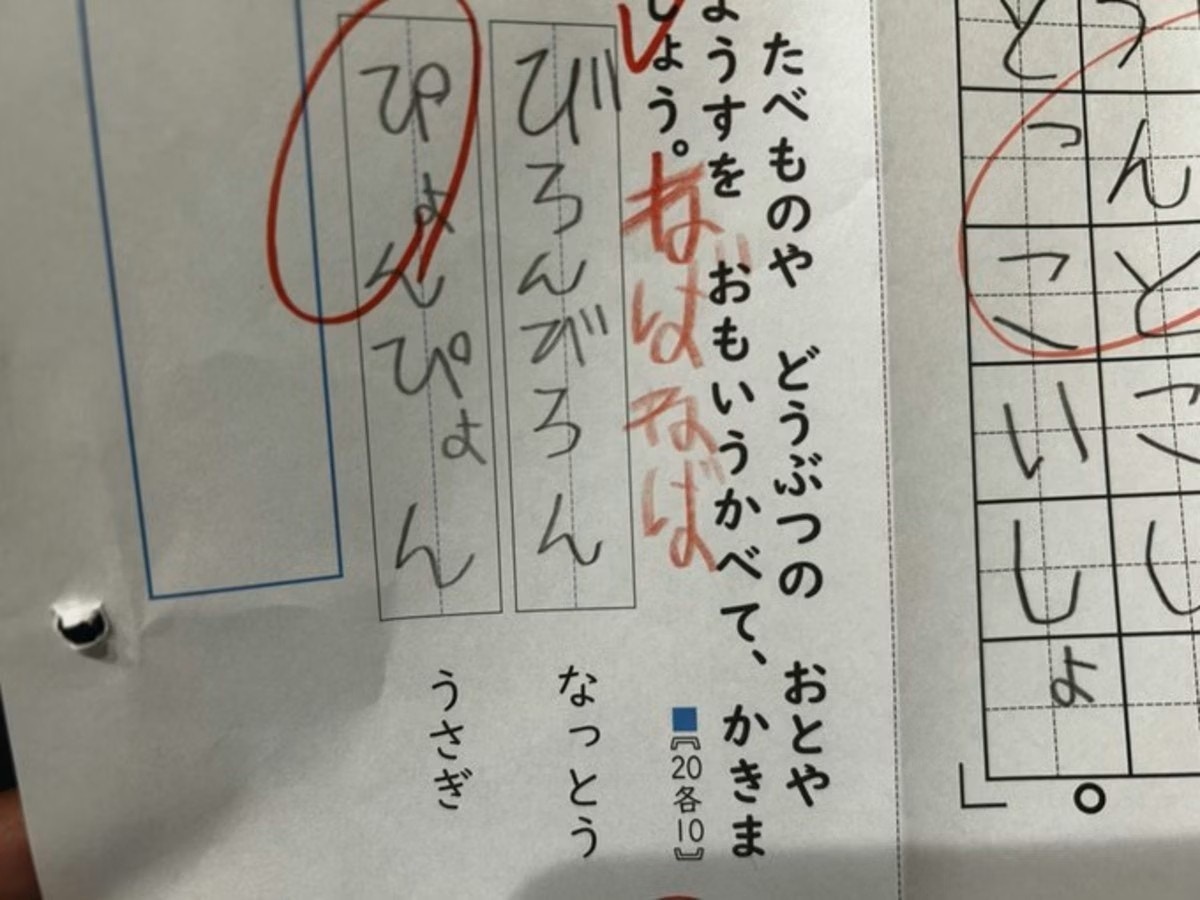 うんとこし
どっこいしょ
たべものや どうぶつの おとや
ようすを おもいうかべて、かきま
しょう。
〘20各10〙
ねばねば
びろんびろん
なっとう
ぴょんぴょん
うさぎ